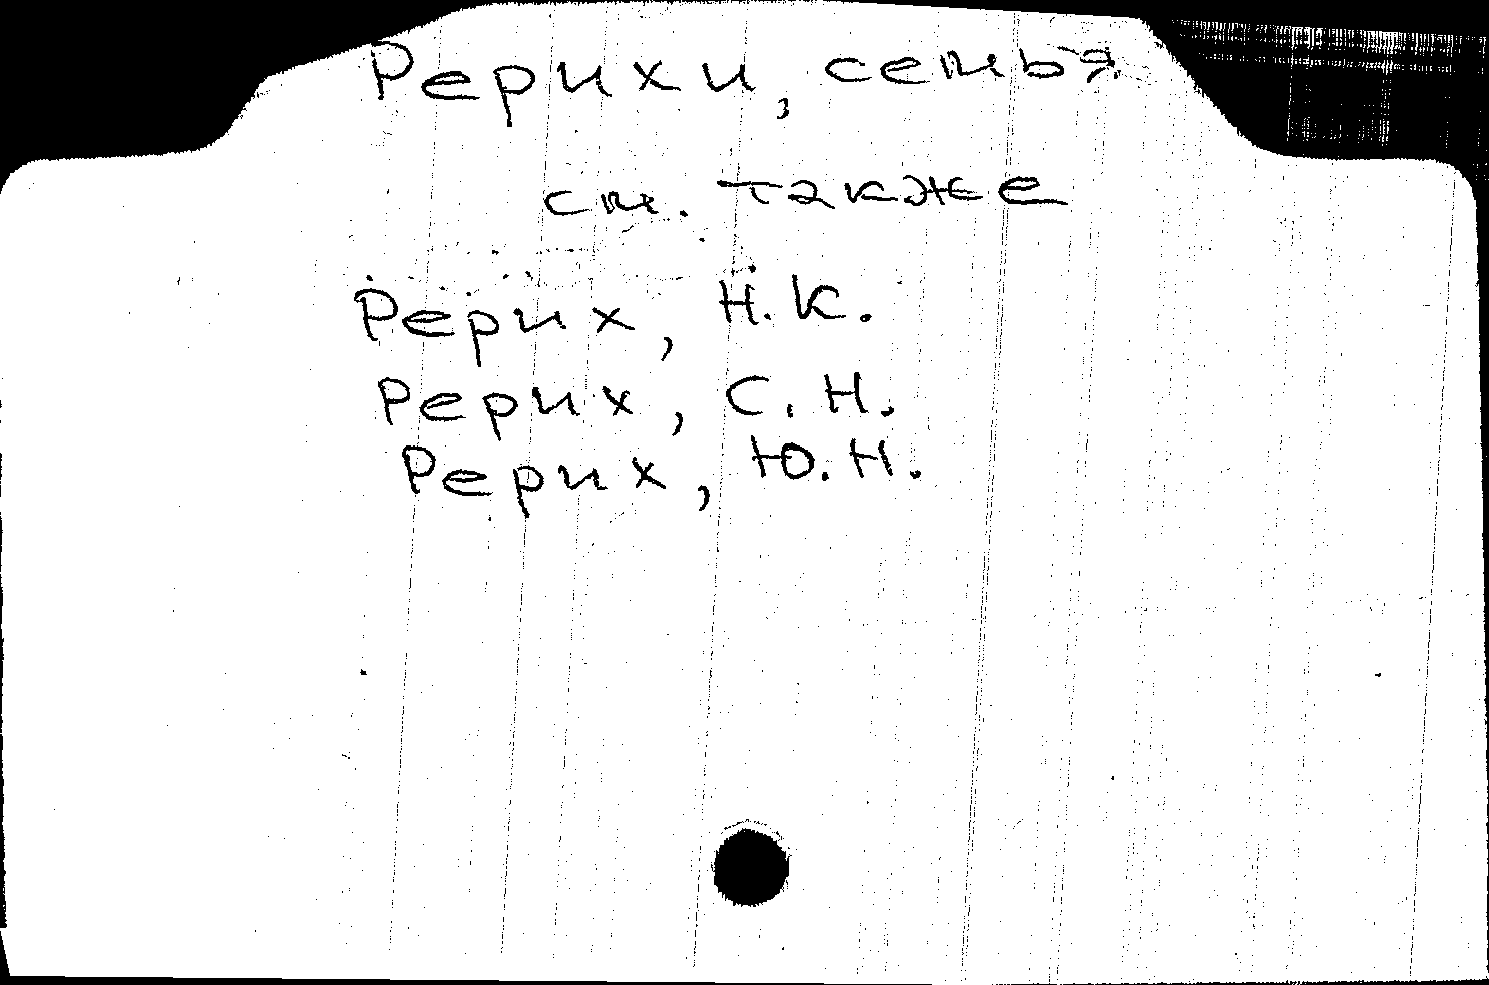 Рерихи, семья
см. также
Рерих, Н.К.
Рерих, С.Н.
Рерих, Ю.Н.